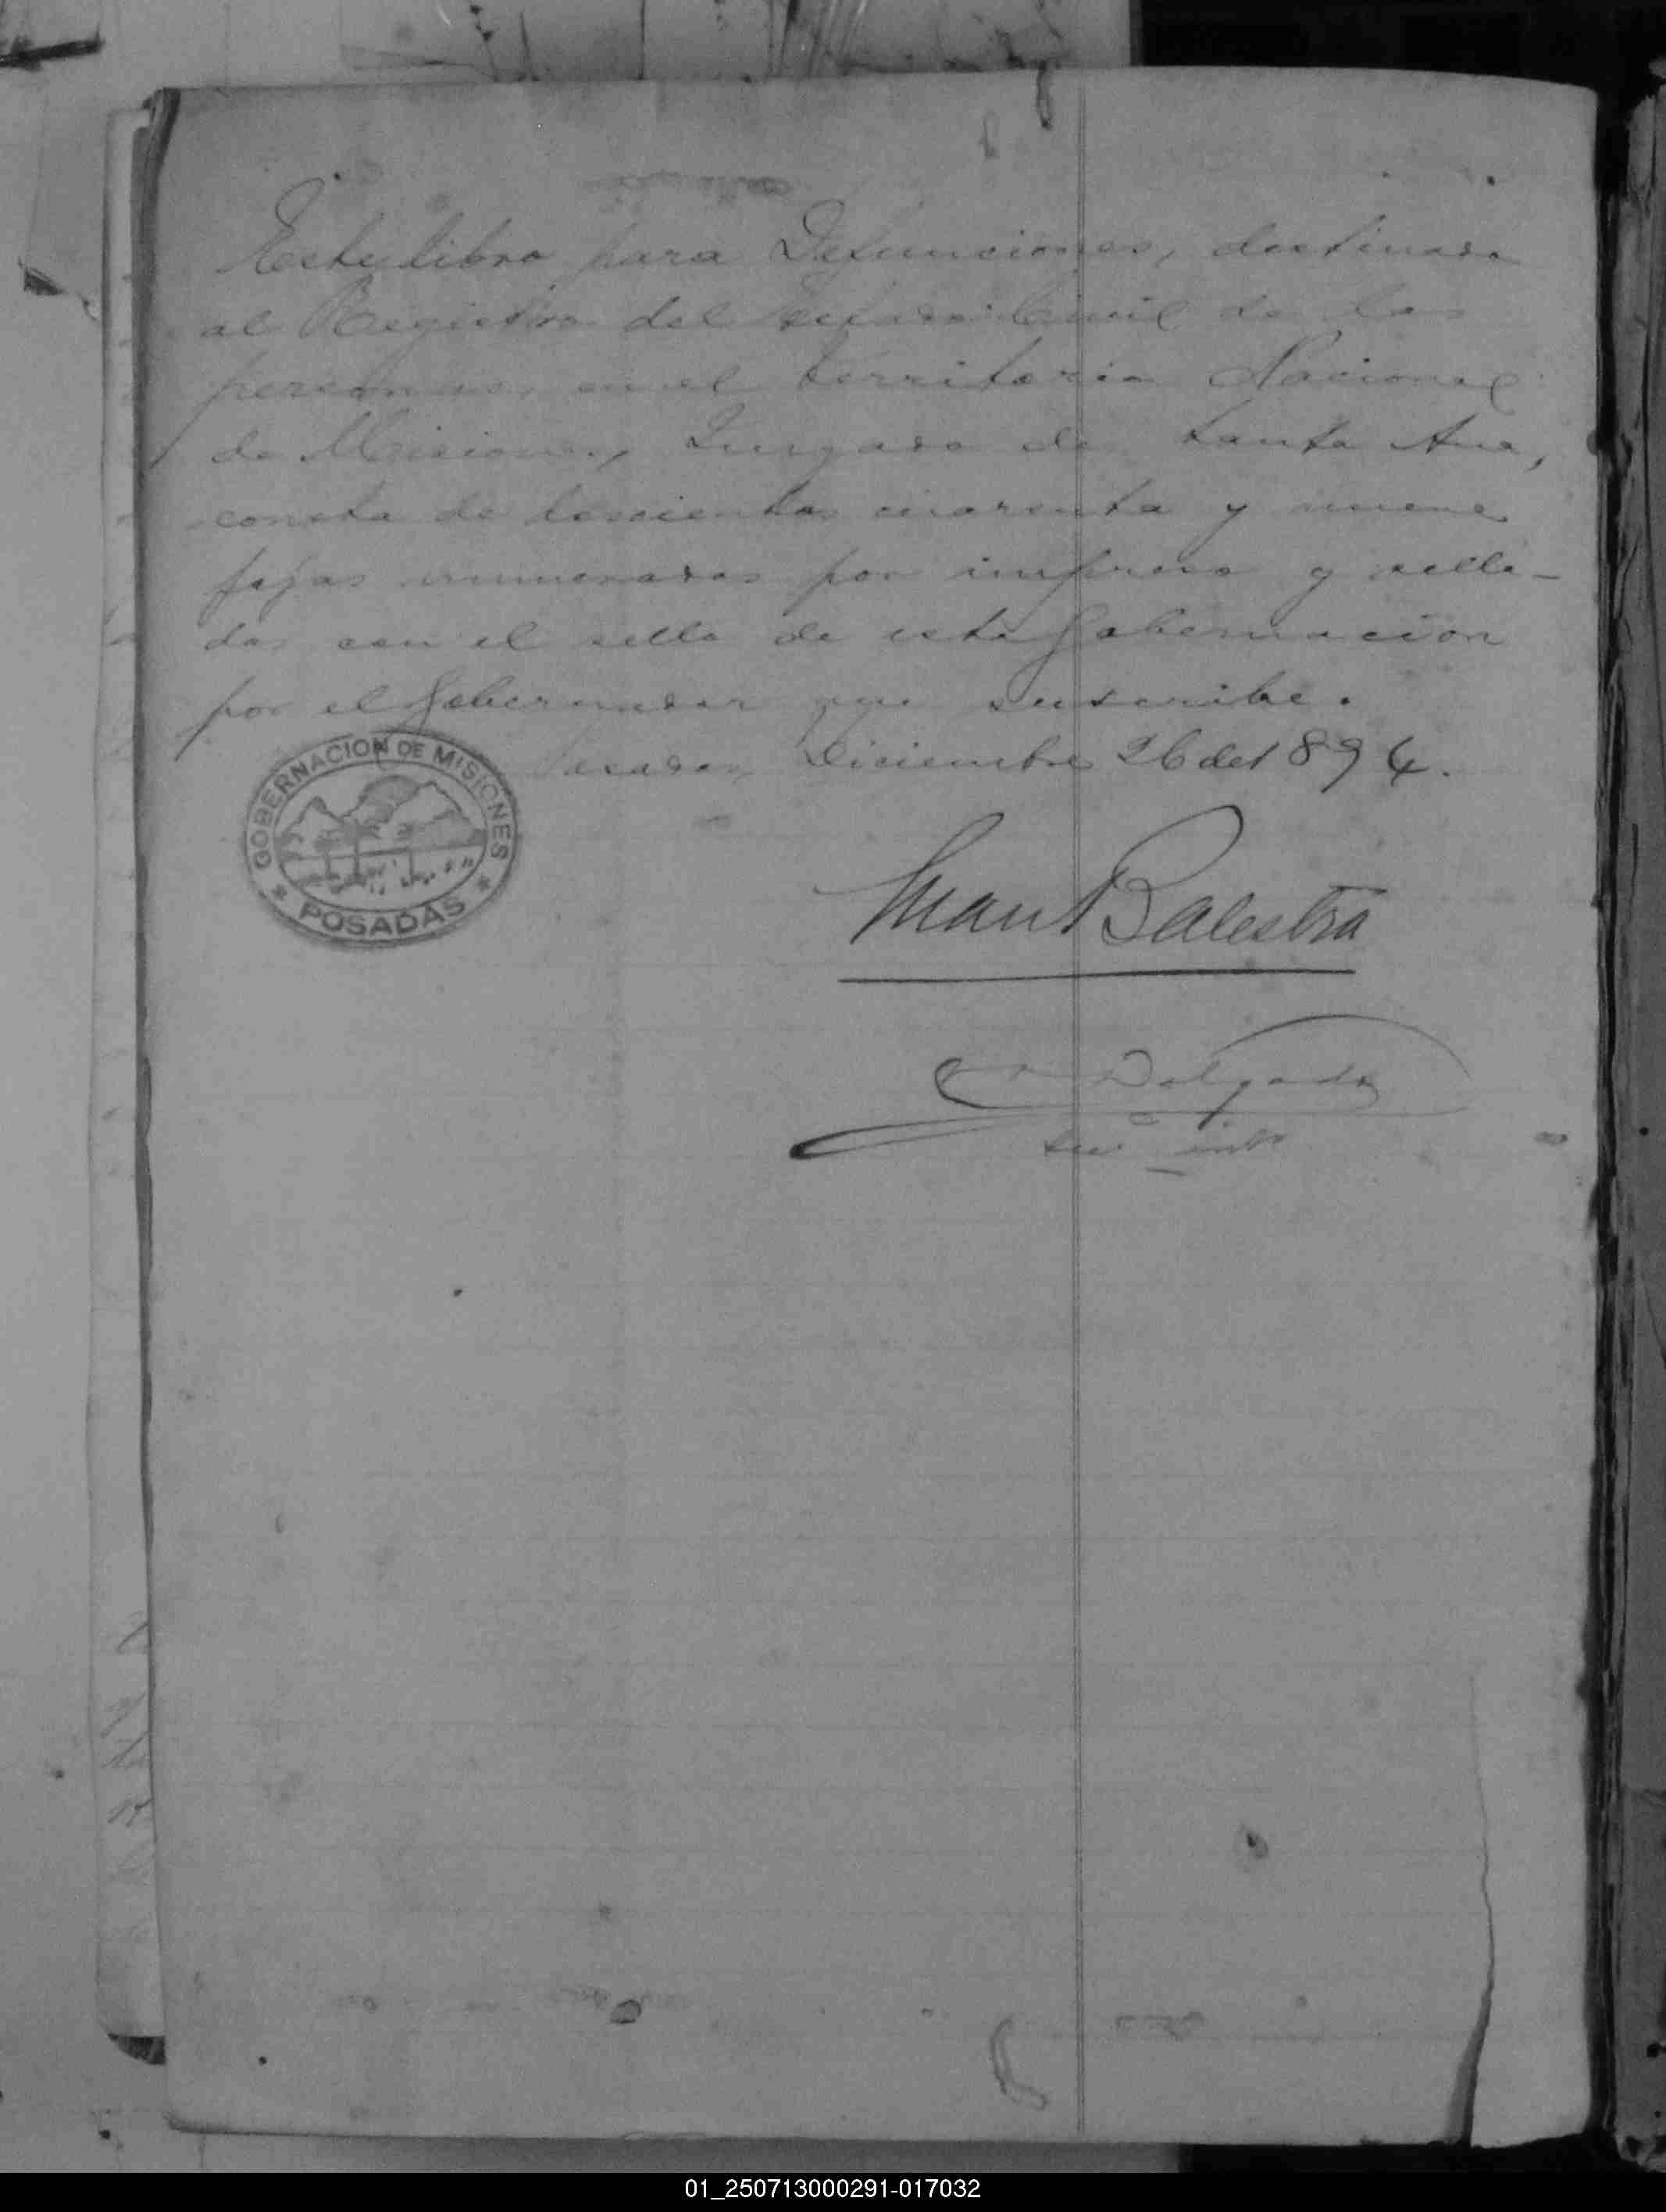 Este libro para Defunciones, destinado
al Registro del Estado Civil de las
personas, en el territorio Nacional
de Misiones, Juzgado de Santa Ana,
consta de doscientas cuarenta y nueve
fojas numeradas por impreso y sella-
das con el sello de esta Gobernacion
por el Gobernador que suscribe.
Posadas, Diciembre 26 de 1894.
GOBERNACION DE MISIONES
POSADAS
Juan Balestra
Delgado
01_250713000291-017032